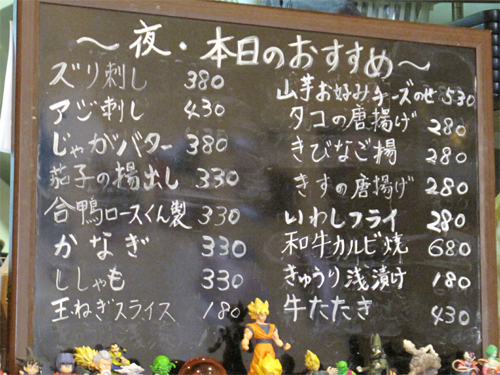 ～夜・本日のおすすめ～
ズリ刺し 380
アジ刺し 430
じゃがバター 380
茄子の揚出し 330
合鴨ロースくん製 330
かなぎ 330
ししゃも 330
玉ねぎスライス 180
山芋お好みチーズのせ 530
タコの唐揚げ 280
きびなご揚 280
きすの唐揚げ 280
いわしフライ 280
和牛カルビ焼 680
きゅうり浅漬け 180
牛たたき 430